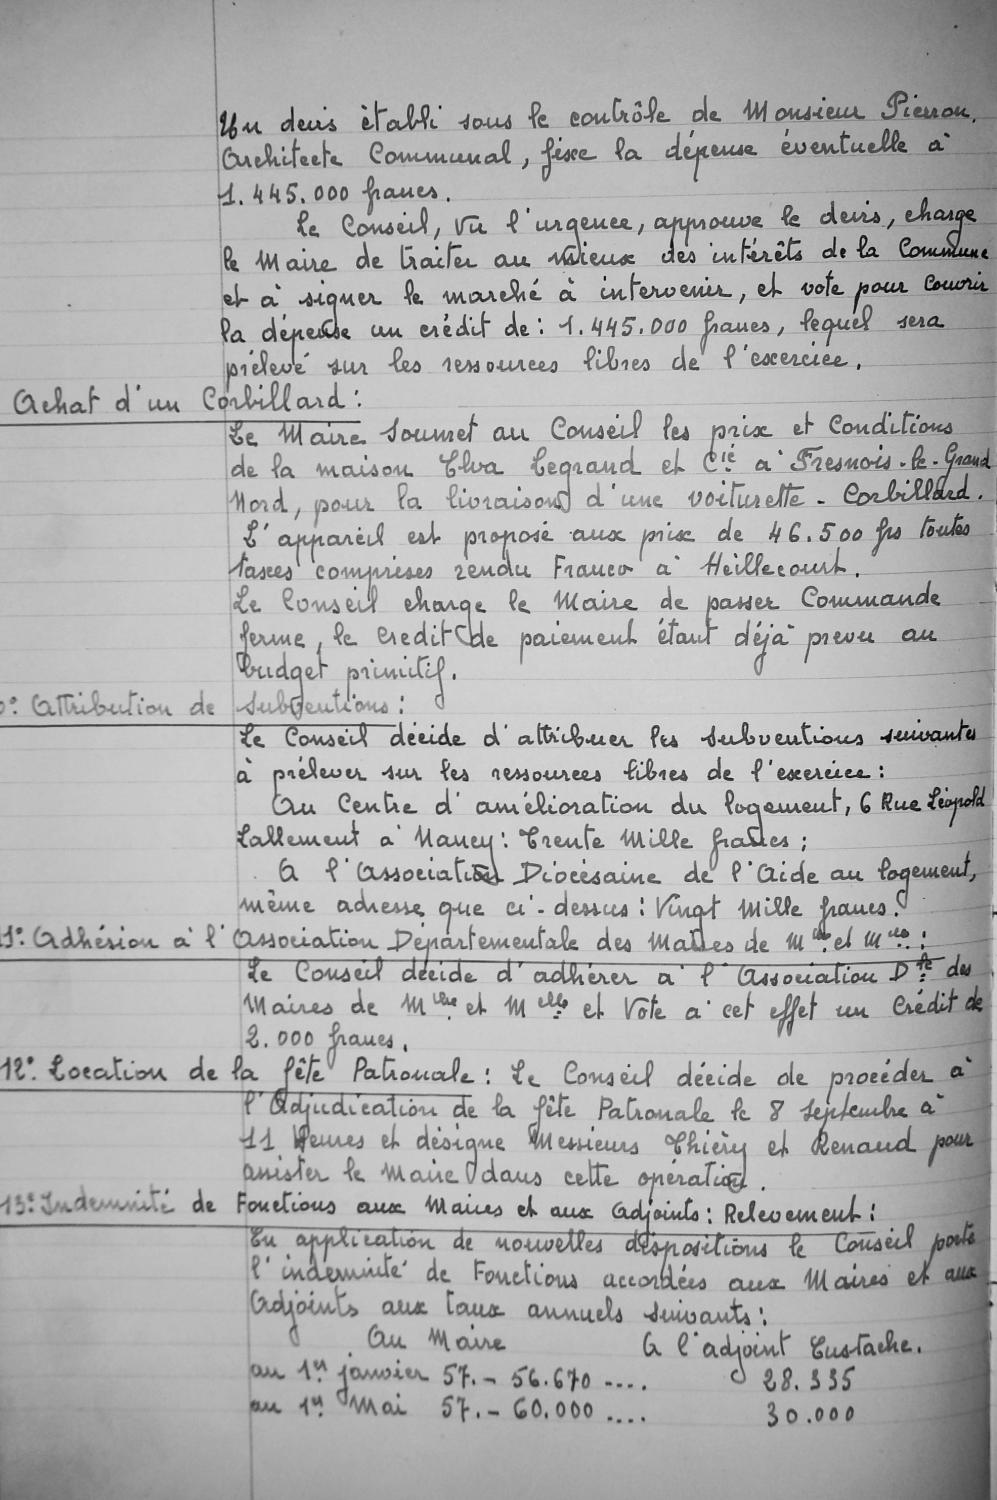 Un devis établi sous le contrôle de Monsieur Pierron,
Architecte Communal, fixe la dépense éventuelle à
1.445.000 francs.
Le Conseil, vu l'urgence, approuve le devis, charge
le Maire de traiter au mieux des intérêts de la Commune
et à signer le marché à intervenir, et vote pour couvrir
la dépense un crédit de : 1.445.000 francs, lequel sera
prélevé sur les ressources libres de l'exercice.
Achat d'un Corbillard :
Le Maire soumet au Conseil les prix et Conditions
de la maison Elva Legrand et Cie à Fresnois-le-Grand
Nord, pour la livraison d'une voiturette - Corbillard.
L'appareil est proposé aux prix de 46.500 frs toutes
taxes comprises rendu Franco à Heillecourt.
Le Conseil charge le Maire de passer Commande
ferme, le credit de paiement étant déjà prevu au
budget primitif.
0°: Attribution de Subventions :
Le Conseil décide d'attribuer les subventions suivantes
à prélever sur les ressources libres de l'exercice :
Au Centre d'amélioration du logement, 6 Rue Léopold
Lallement à Nancy : Trente Mille francs ;
A l'Association Diocésaine de l'Aide au logement,
même adresse que ci-dessus : Vingt Mille francs.
11°: Adhésion à l'Association Départementale des Maires de Mthe et Mlle :
Le Conseil décide d'adhérer à l'Association Dle des
Maires de Mthe et Mlle et Vote à cet effet un Crédit de
2.000 francs.
12°: Location de la fête Patronale : Le Conseil décide de procéder à
l'Adjudication de la fête Patronale le 8 Septembre à
11 Heures et désigne Messieurs Thiéry et Renaud pour
assister le Maire dans cette opération.
13°: Indemnité de Fonctions aux Maires et aux Adjoints : Relevement :
En application de nouvelles dispositions le Conseil porte
l'indemnité de Fonctions accordées aux Maires et aux
Adjoints aux taux annuels suivants :
Au Maire A l'adjoint Eustache.
au 1er janvier 57.- 56.670 .... 28.335
au 1er Mai 57.- 60.000 .... 30.000